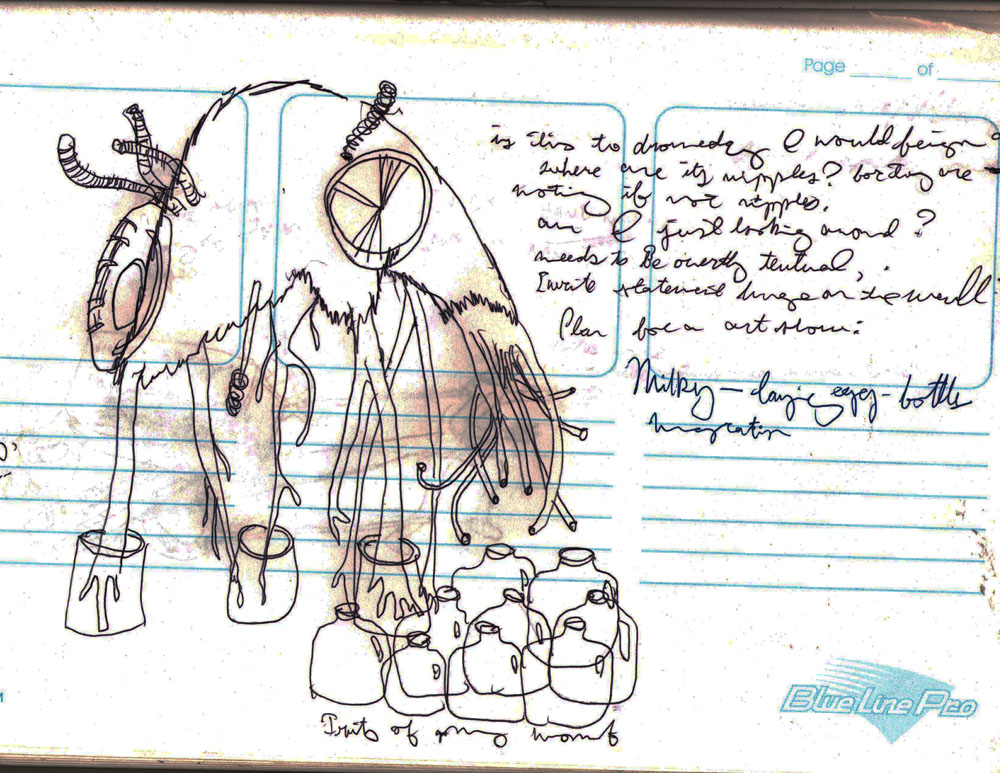 Page ______ of ______
is this to
I would feign
where are its nipples? for they are
nothing if not nipples.
am I just looking around?
needs to Be overtly textual,
write statement huge on the wall
Plan for a art show:
Milky — laying eggs - bottles
migration
Fruits of my womb
Blue Line Pro